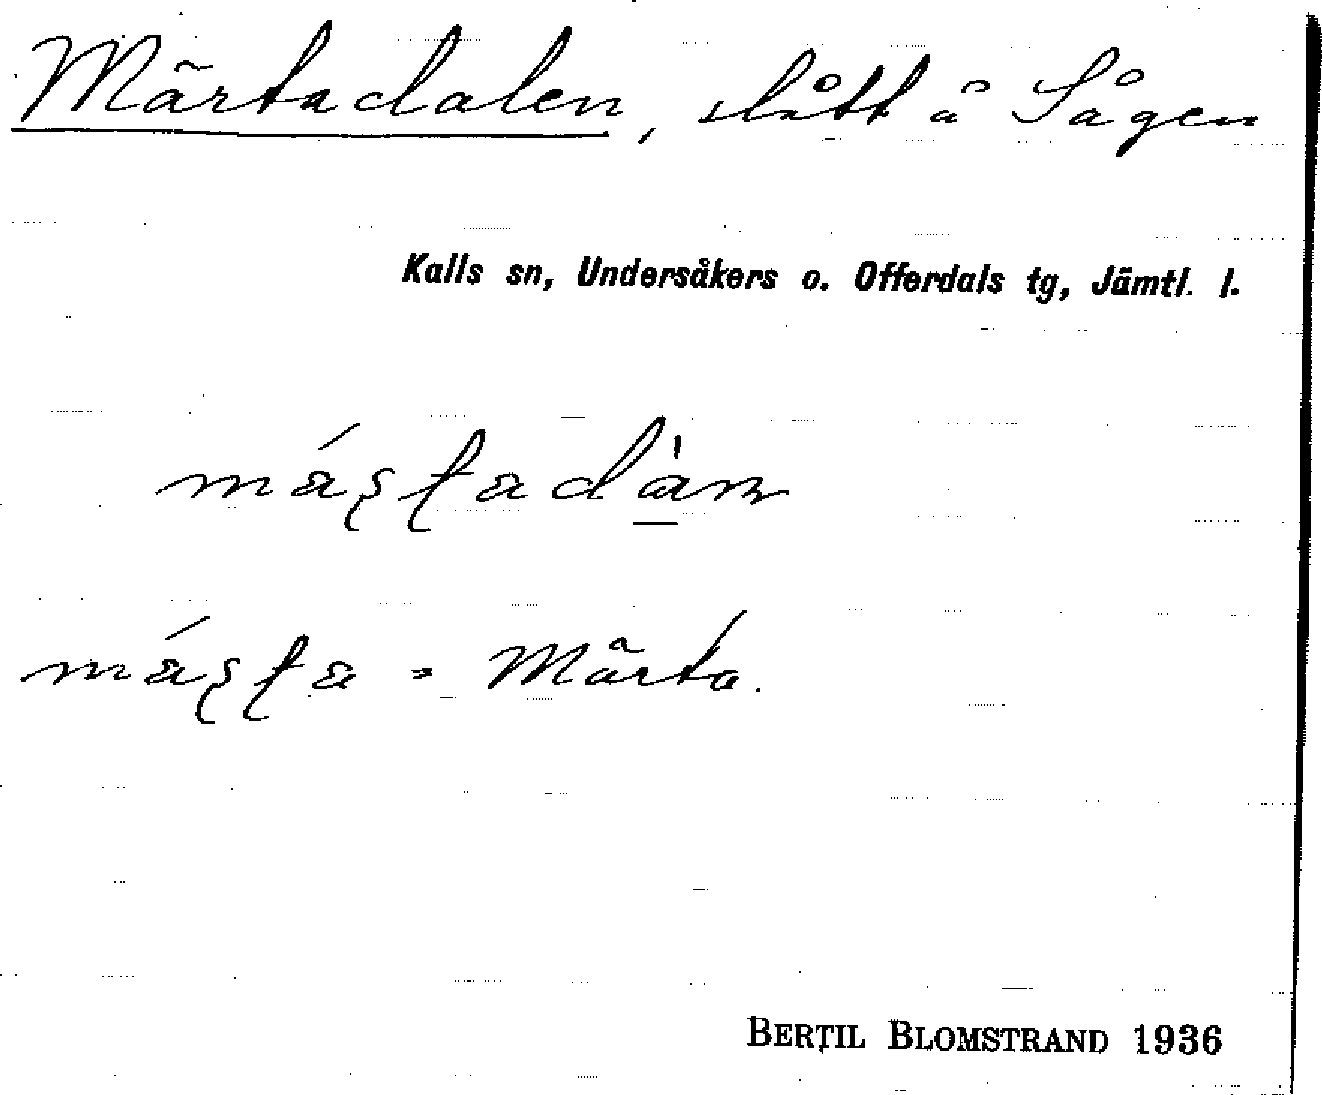 Märtadalen, slått å Sågen
Kalls sn, Undersåkers o. Offerdals tg, Jämtl. l.
= Märta.
BERTIL BLOMSTRAND 1936